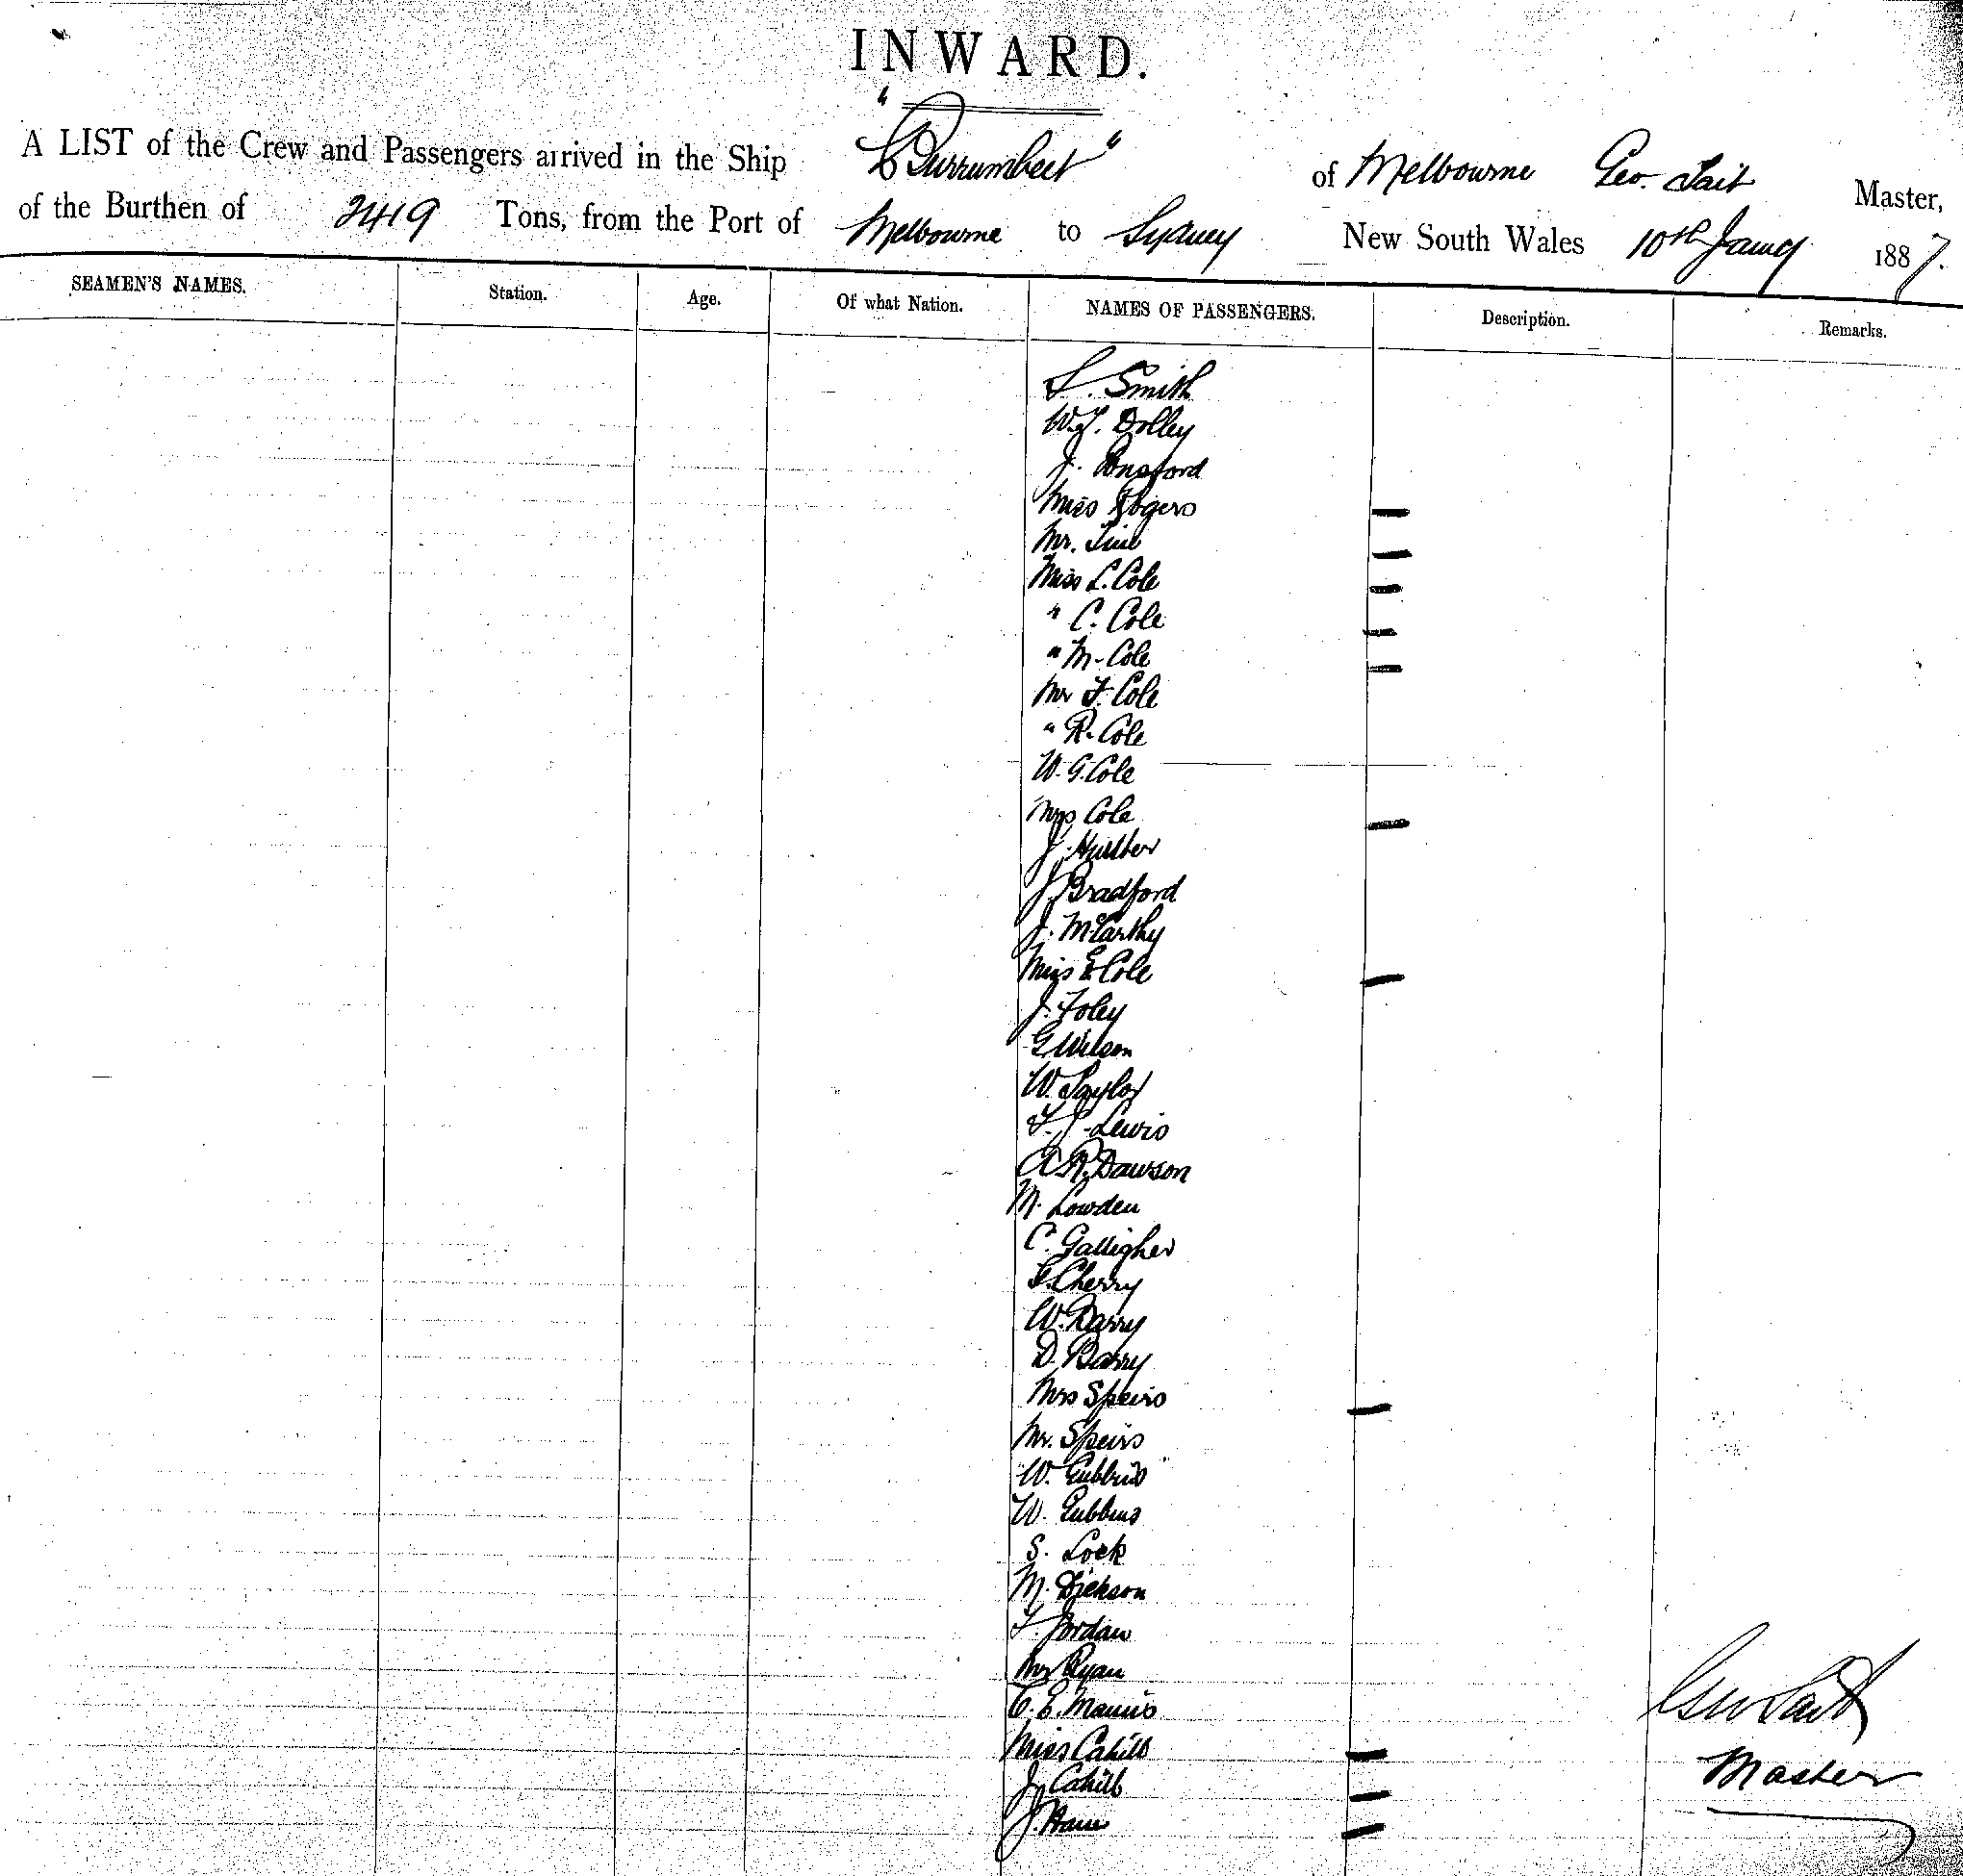 INWARD.
A LIST of the Crew and Passengers arrived in the Ship "Burrumbeet" of Melbourne Geo. Tait Master,
of the Burthen of 2419 Tons, from the Port of Melbourne to Sydney New South Wales 10th Jany 1887.
SEAMEN'S NAMES. Station. Age. Of what Nation. NAMES OF PASSENGERS. Description. Remarks.
S. Smith
Dolley
J. Ponsford
Miss Rogers
Mr.
Miss L. Cole
" C. Cole
" M. Cole
Mr F. Cole
" R. Cole
W. G. Cole
Mrs Cole
J.
J. Bradford
J. McCarthy
Miss E Cole
J. Foley
G. Wilson
W. Taylor
F. J. Lewis
A R. Dawson
M. Lowden
C. Galligher
Cherry
W. Barry
D. Barry
Mrs Speirs
Mr. Speirs
W. Gubbins
W. Gubbins
S. Lock
M. Dickson
Jordan
Ryan
C. E. Mannis
Miss Cahill
J. Cahill
J.
Geo Tait
Master